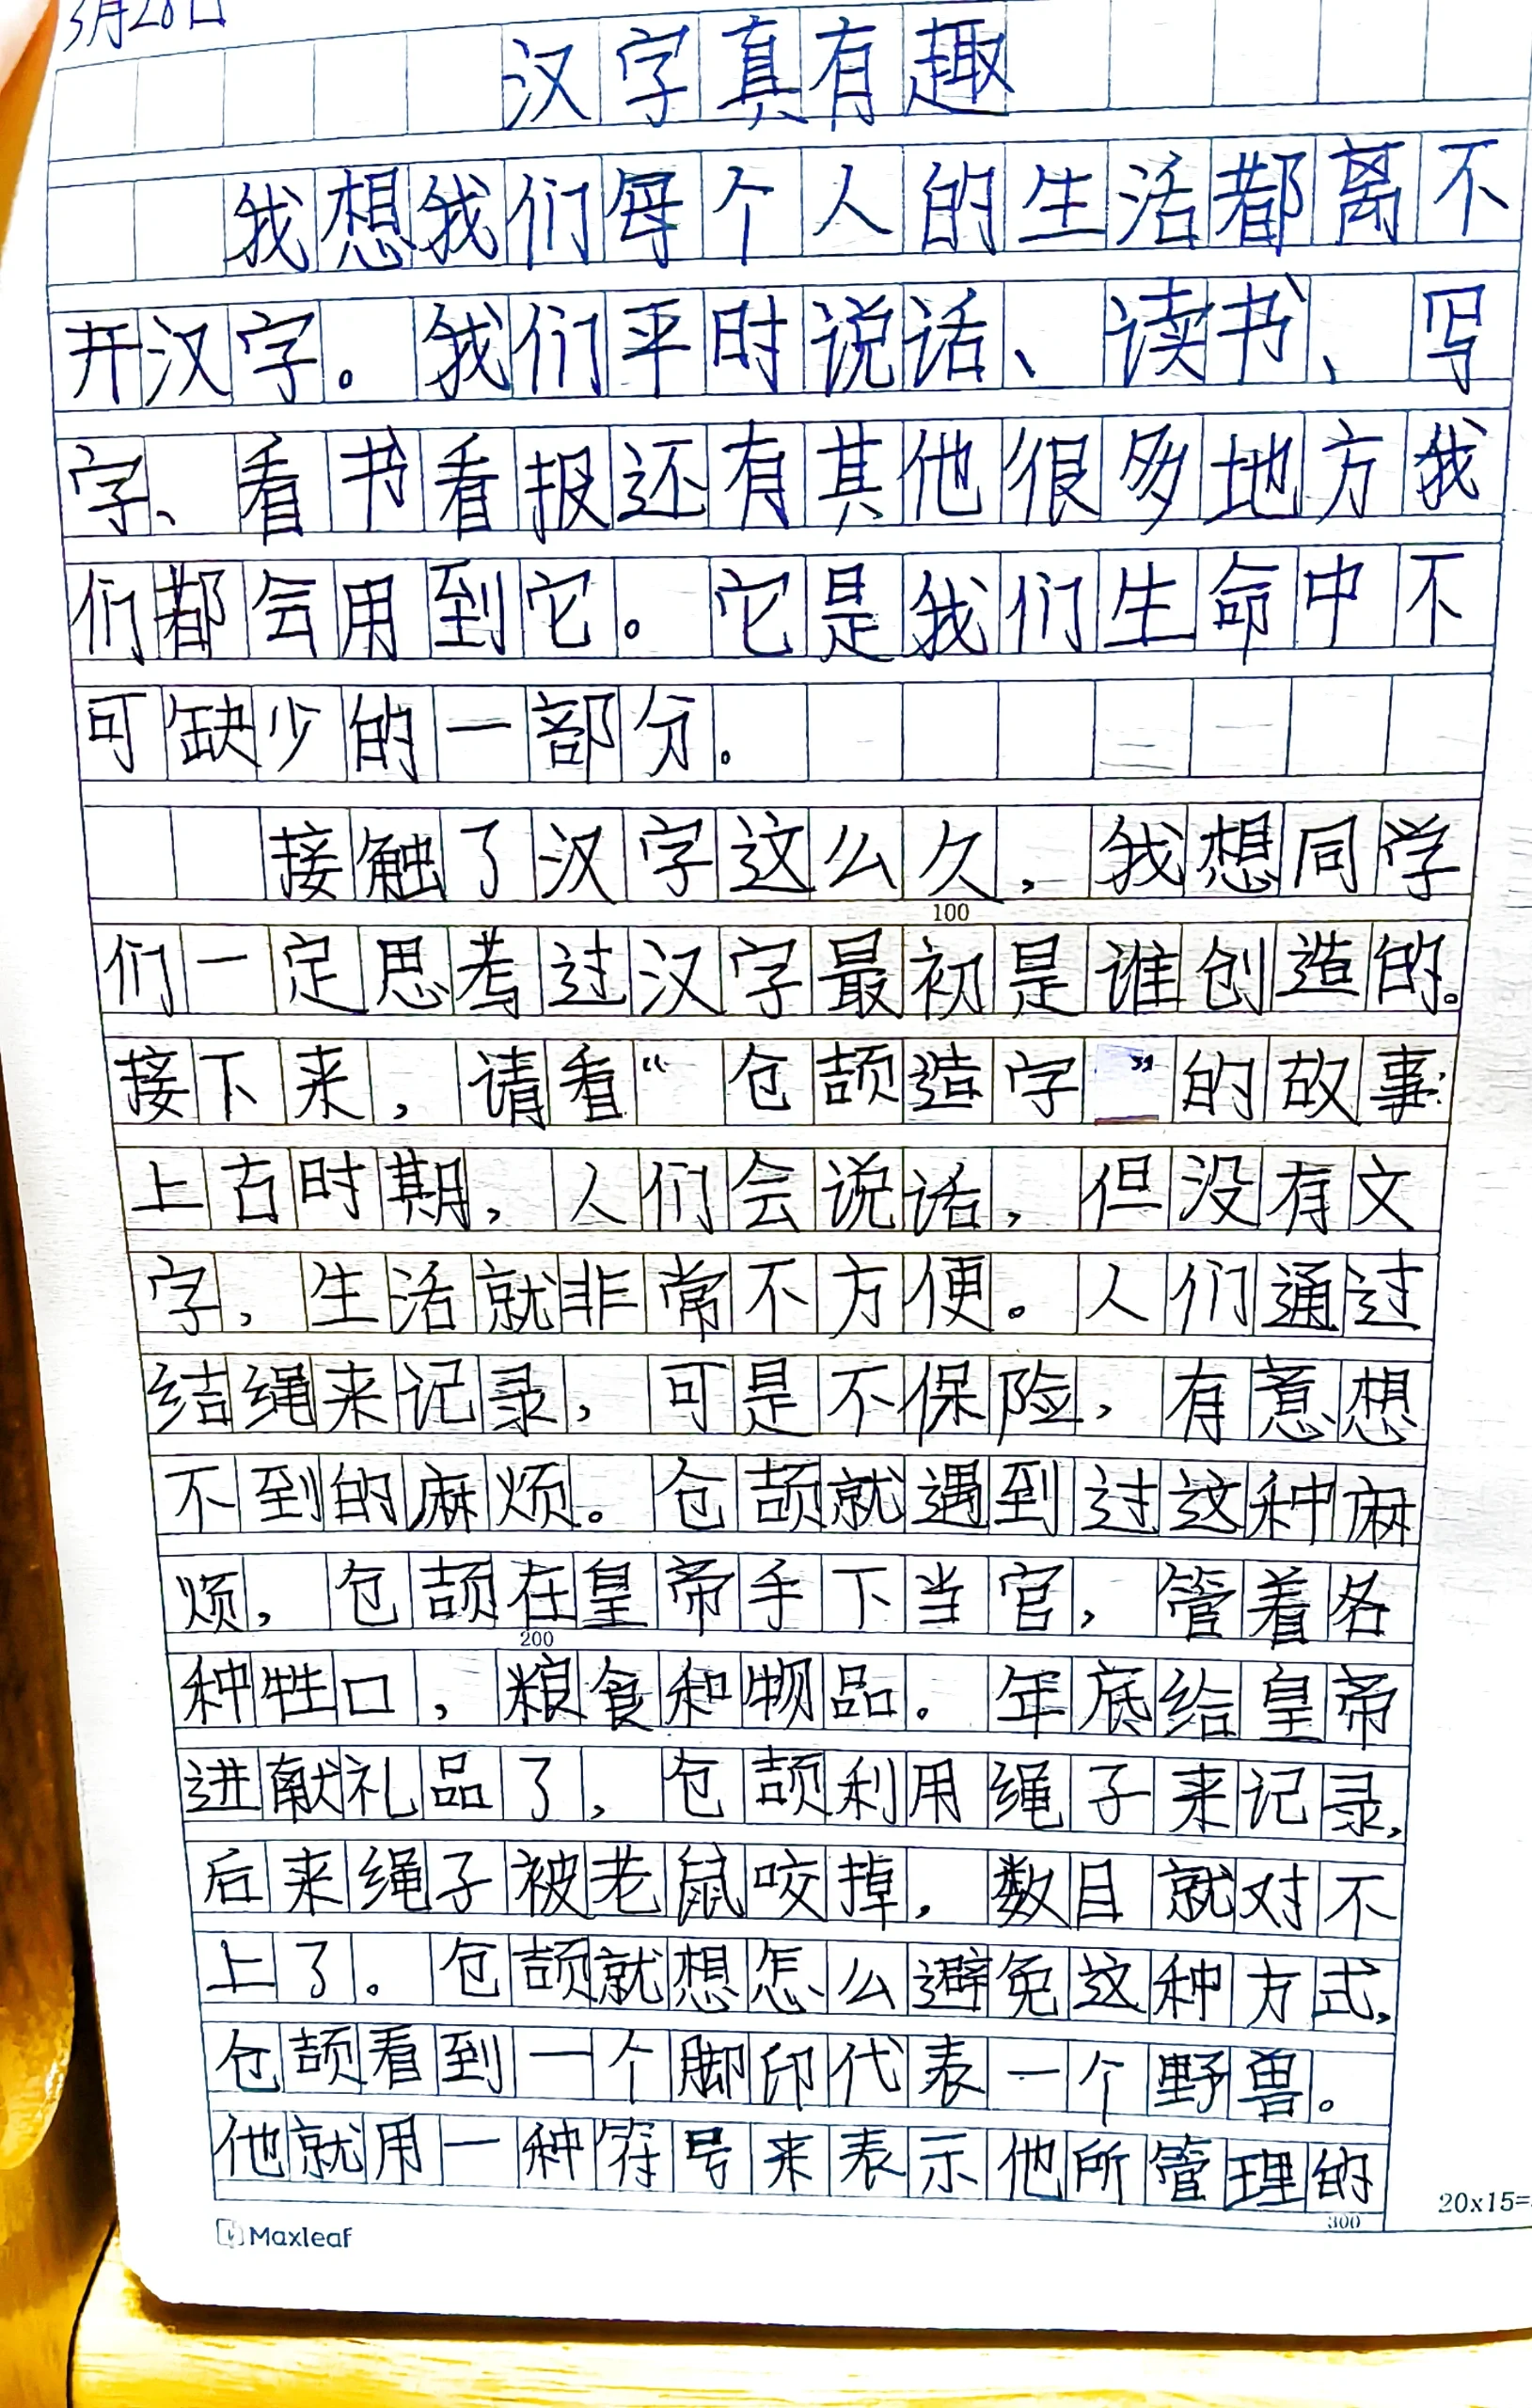 3月28日
汉字真有趣
我想我们每个人的生活都离不
开汉字。我们平时说话、读书、写
字、看书看报还有其他很多地方我
们都会用到它。它是我们生命中不
可缺少的一部分。
接触了汉字这么久，我想同学
100
们一定思考过汉字最初是谁创造的。
接下来，请看“仓颉造字”的故事：
上古时期，人们会说话，但没有文
字，生活就非常不方便。人们通过
结绳来记录，可是不保险，有意想
不到的麻烦。仓颉就遇到过这种麻
烦，仓颉在皇帝手下当官，管着各
200
种牲口，粮食和物品。年底给皇帝
进献礼品了，仓颉利用绳子来记录，
后来绳子被老鼠咬掉，数目就对不
上了。仓颉就想怎么避免这种方式，
仓颉看到一个脚印代表一个野兽。
他就用一种符号来表示他所管理的
300
20x15=
Maxleaf